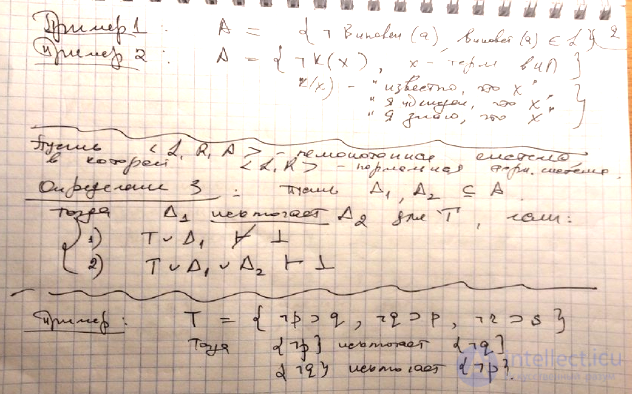 Пример 1: A = { ¬ Виновен (a), виновен (a) ∈ L } 2
Пример 2: A = { ¬ K(x), x - терм в ИЛ }
K(x) - "известно, что x"
"я убежден, что x"
"я знаю, что x"
Пусть < L, R, A > - немонотонная система
в которой < L, R > - нормальная форм. система.
Определение 3: пусть Δ₁, Δ₂ ⊆ A
Тогда Δ₁ исключает Δ₂ для T, если:
1) T ∪ Δ₁ ⊬ ⊥
2) T ∪ Δ₁ ∪ Δ₂ ⊢ ⊥
Пример: T = { ¬p ⊃ q, ¬q ⊃ p, ¬r ⊃ s }
Тогда {¬p} исключает {¬q}
{¬q} исключает {¬p}.
intellect.icu